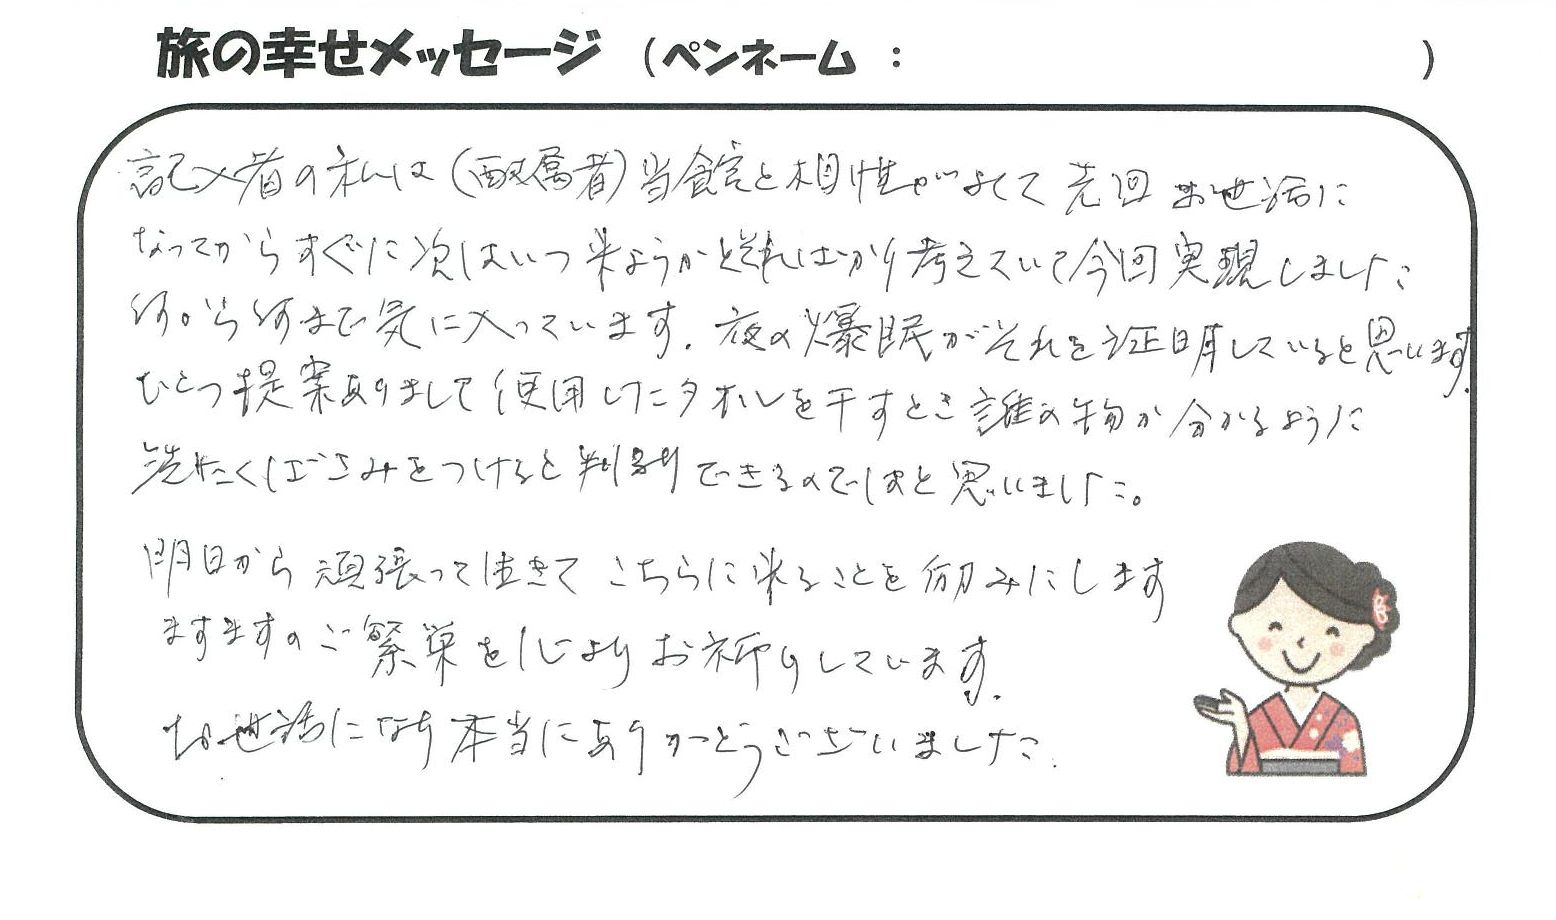 旅の幸せメッセージ (ペンネーム : )
記入者の私は(配属者)当館と相性がよくて先回お世話に
なってからすぐに次はいつ来ようかとそればかり考えていて今回実現しました
何から何まで気に入っています。夜の爆眠がそれを証明していると思います。
ひとつ提案ありまして使用したタオルを干すとき誰の物か分かるように
洗たくばさみをつけると判別できるのではと思いました。
明日から頑張って生きてこちらに来ることを励みにします
ますますのご繁栄を心よりお祈りしています。
お世話になり本当にありがとうございました。